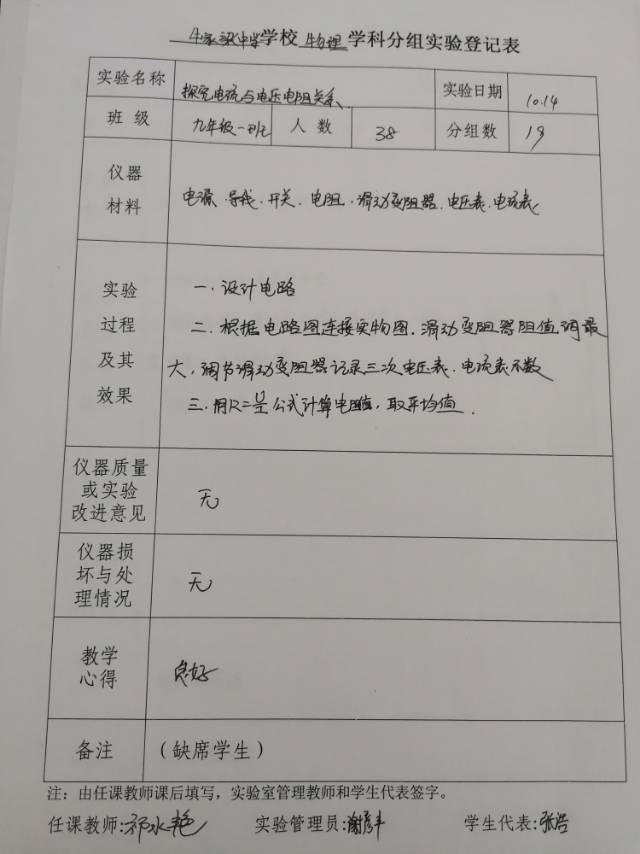 牛家梁中学学校 物理 学科分组实验登记表
实验名称 探究电流与电压电阻关系、 实验日期 10.14
班 级 九年级一班 人 数 38 分组数 19
仪器
材料
电源、导线、开关、电阻、滑动变阻器、电压表、电流表
实验
过程
及其
效果
一、设计电路
二、根据电路图连接实物图、滑动变阻器阻值调最
大,调节滑动变阻器记录三次电压表、电流表示数
三、用R=U/I公式计算电阻值,取平均值.
仪器质量
或实验
改进意见
无
仪器损
坏与处
理情况
无
教学
心得
良好
备注 (缺席学生)
注:由任课教师课后填写,实验室管理教师和学生代表签字。
任课教师:祁水艳 实验管理员: 学生代表:张浩